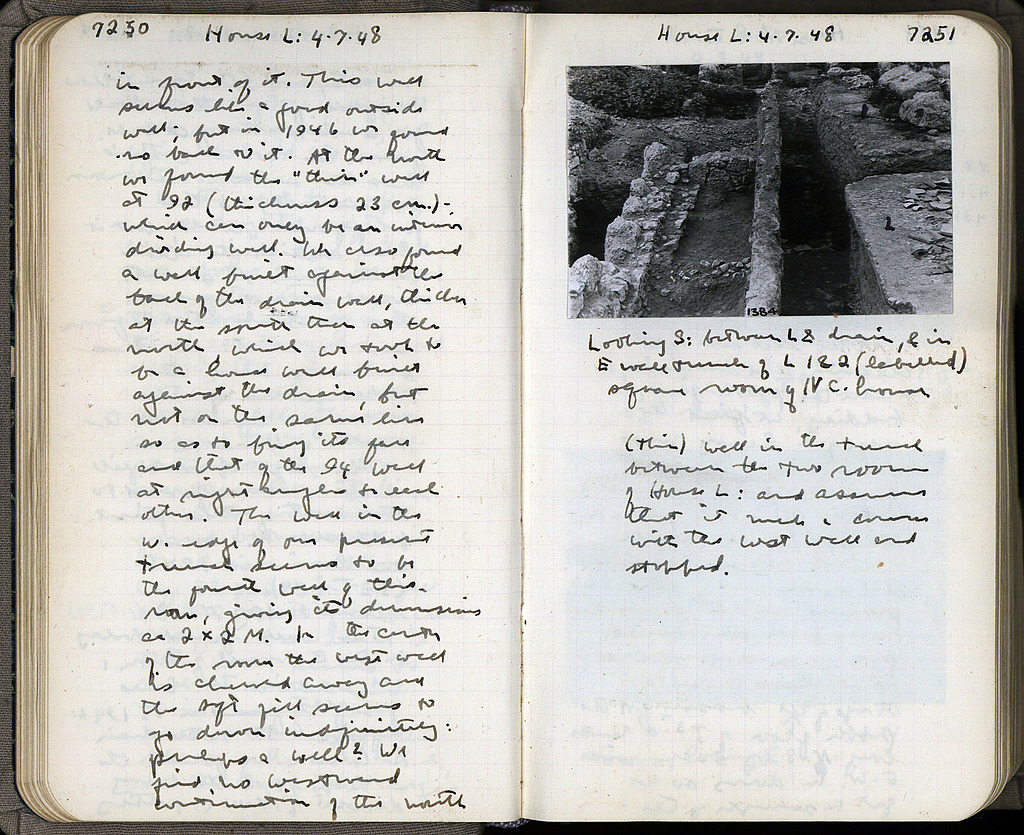 7250
House L: 4.7.48
in front of it. This wall
seems like a good outside
wall; but in 1946 we found
no back to it. At the north
we found the "thin" wall
at 92 (thickness 23 cm.) -
which can only be an interior
dividing wall. We also found
a wall built against the
back of the drain wall, thicker
at the south than at the
north, which we took to
be a house wall built
against the drain, but
not on the same line
so as to bring its face
and that of the 94 wall
at right angles to each
other. The wall in the
w. edge of our present
trench seems to be
the fourth wall of this
room, giving its dimensions
as 2 x 2 M. In the center
of the room the west wall
is chewed away and
the soft fill seems to
go down indefinitely:
perhaps a well? We
find no westward
continuation of the north
House L: 4.7.48
7251
L
1384
Looking S: between L & drain, & in
E wall trench of L 1 & 2 (labelled)
square room of IV C. house
(thin) wall in the trench
between the two rooms
of House L: and assume
that it made a corner
with the west wall and
stopped.